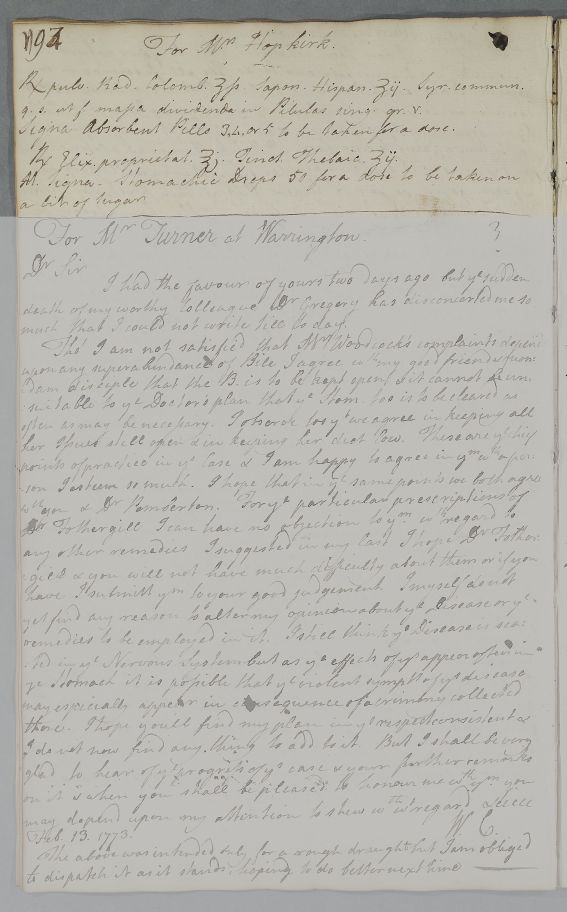 For Mrs Hopkirk.
℞ pulv. Rad. Colomb. ʒſs Sapon. Hispan. ʒij. Syr. commun.
q. s. ut f massa dividenda in Pilulas sing. gr. v.
Signa Absorbent Pills 3, 4, or 5 to be taken for a dose.
℞ Elix. proprietat. ℥j. Tinct. Thebaic. ʒij.
M. Signa. Stomachic Drops 50 for a dose to be taken on
a bit of sugar
For Mr Turner at Warrington.
Dr Sir
I had the favour of yours two days ago but ye sudden
death of my worthy Colleague Dr Gregory has disconcerted me so
much that I could not write till to day.
Tho' I am not satisfied that Mrs Woodcock's complaints depend
upon any superabundance of Bile, I agree wth my good friend &
disciple that the B. is to be kept open, & it cannot be un:
:suitable to ye Doctor's plan that ye Stom. too is to be cleared as
often as may be necessary. I observe too yt we agree in keeping all
her Issues still open & in keeping her diet low. These are ye chief
points of practice in ye Case & I am happy to agree in ym wth a per:
:son I esteem so much. I hope that in ye same points we both agree
wth you & Dr Pemberton. For ye particular prescriptions of
Dr Fothergill I can have no objection to ym. wth regard to
any other remedies I suggested in my last I hope Dr Fother:
:gill & you will not have much difficulty about them or if you
have I submitt ym to your good judgement. I myself do not
yet find any reason to alter my opinion about ye Disease or ye
remedies to be employed in it. I still think ye Disease is sea:
:ted in ye Nervous System but as ye effects of ys appear often in
ye Stomach it is possible that ye violent sympts of ys disease
may especially appear in consequence of acrimony collected
there. I hope you'll find my plan in yt respect consistent &
I do not now find any thing to add to it. But I shall be very
glad to hear of ye progress of ye case & your further remarks
on it & when you shall be pleased to honour me wth ym you
may depend upon my attention to shew wth wt regard &cccc
W. C.
Feb. 13. 1773.
The above was intended only for a rough draught but I am obliged
to dispatch it as it stands, hoping to do better next time